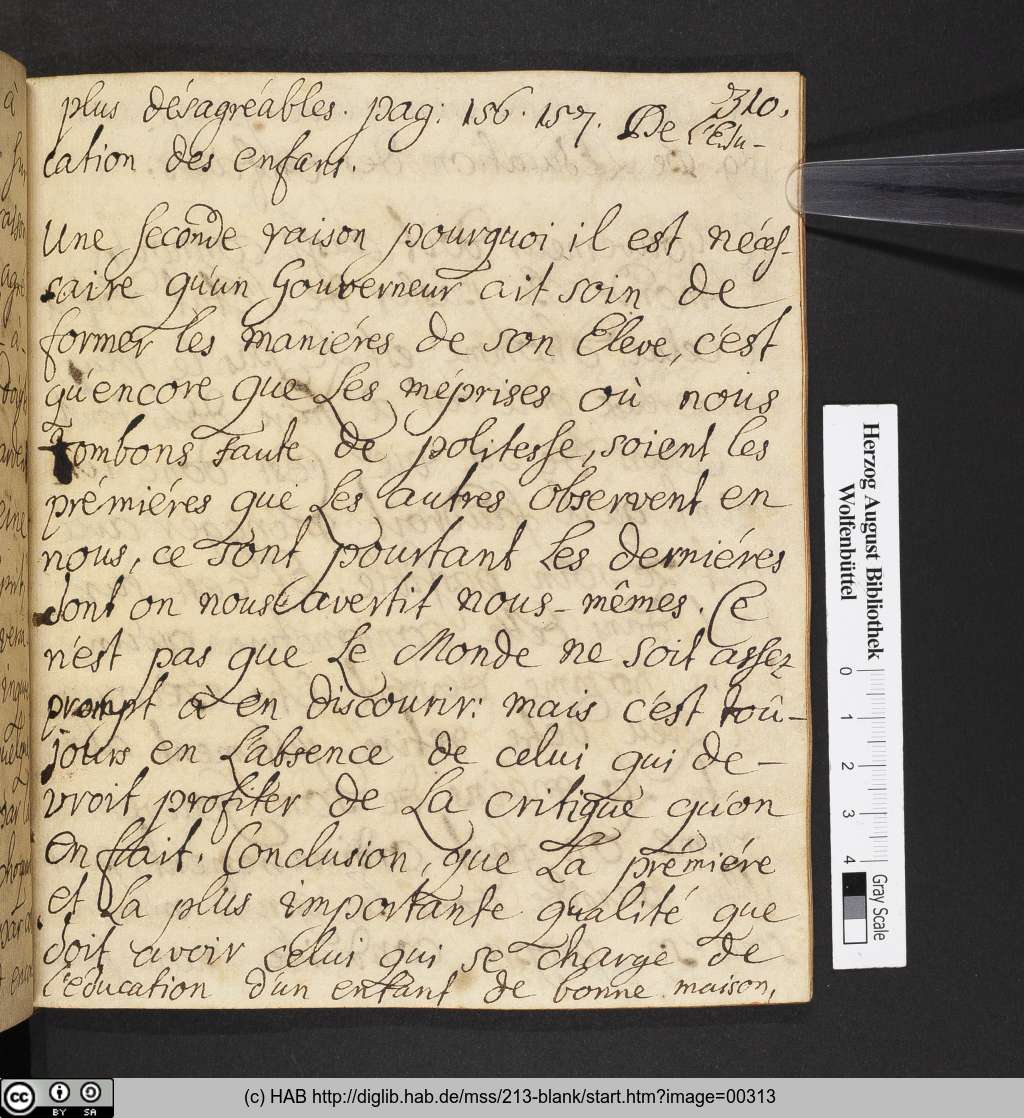 310.
plus désagréables. pag: 156. 157. De l'Edu-
cation des enfans.
Une seconde raison pourquoi il est néces-
saire qu'un Gouverneur ait soin de
former les maniéres de son Eleve, c'est
qu'encore que les méprises où nous
tombons faute de politesse, soient les
prémiéres que les autres observent en
nous, ce sont pourtant les derniéres
dont on nous avertit nous-mêmes. Ce
n'est pas que le Monde ne soit assez
prompt à en discourir: mais c'est toû-
jours en l'absence de celui qui de-
vroit profiter de la critique qu'on
en fait. Conclusion, que la prémiére
et la plus importante qualité que
doit avoir celui qui se charge de
l'éducation d'un enfant de bonne maison,
Herzog August Bibliothek
Wolfenbüttel
0 1 2 3 4
Gray Scale
cc BY SA
(c) HAB http://diglib.hab.de/mss/213-blank/start.htm?image=00313